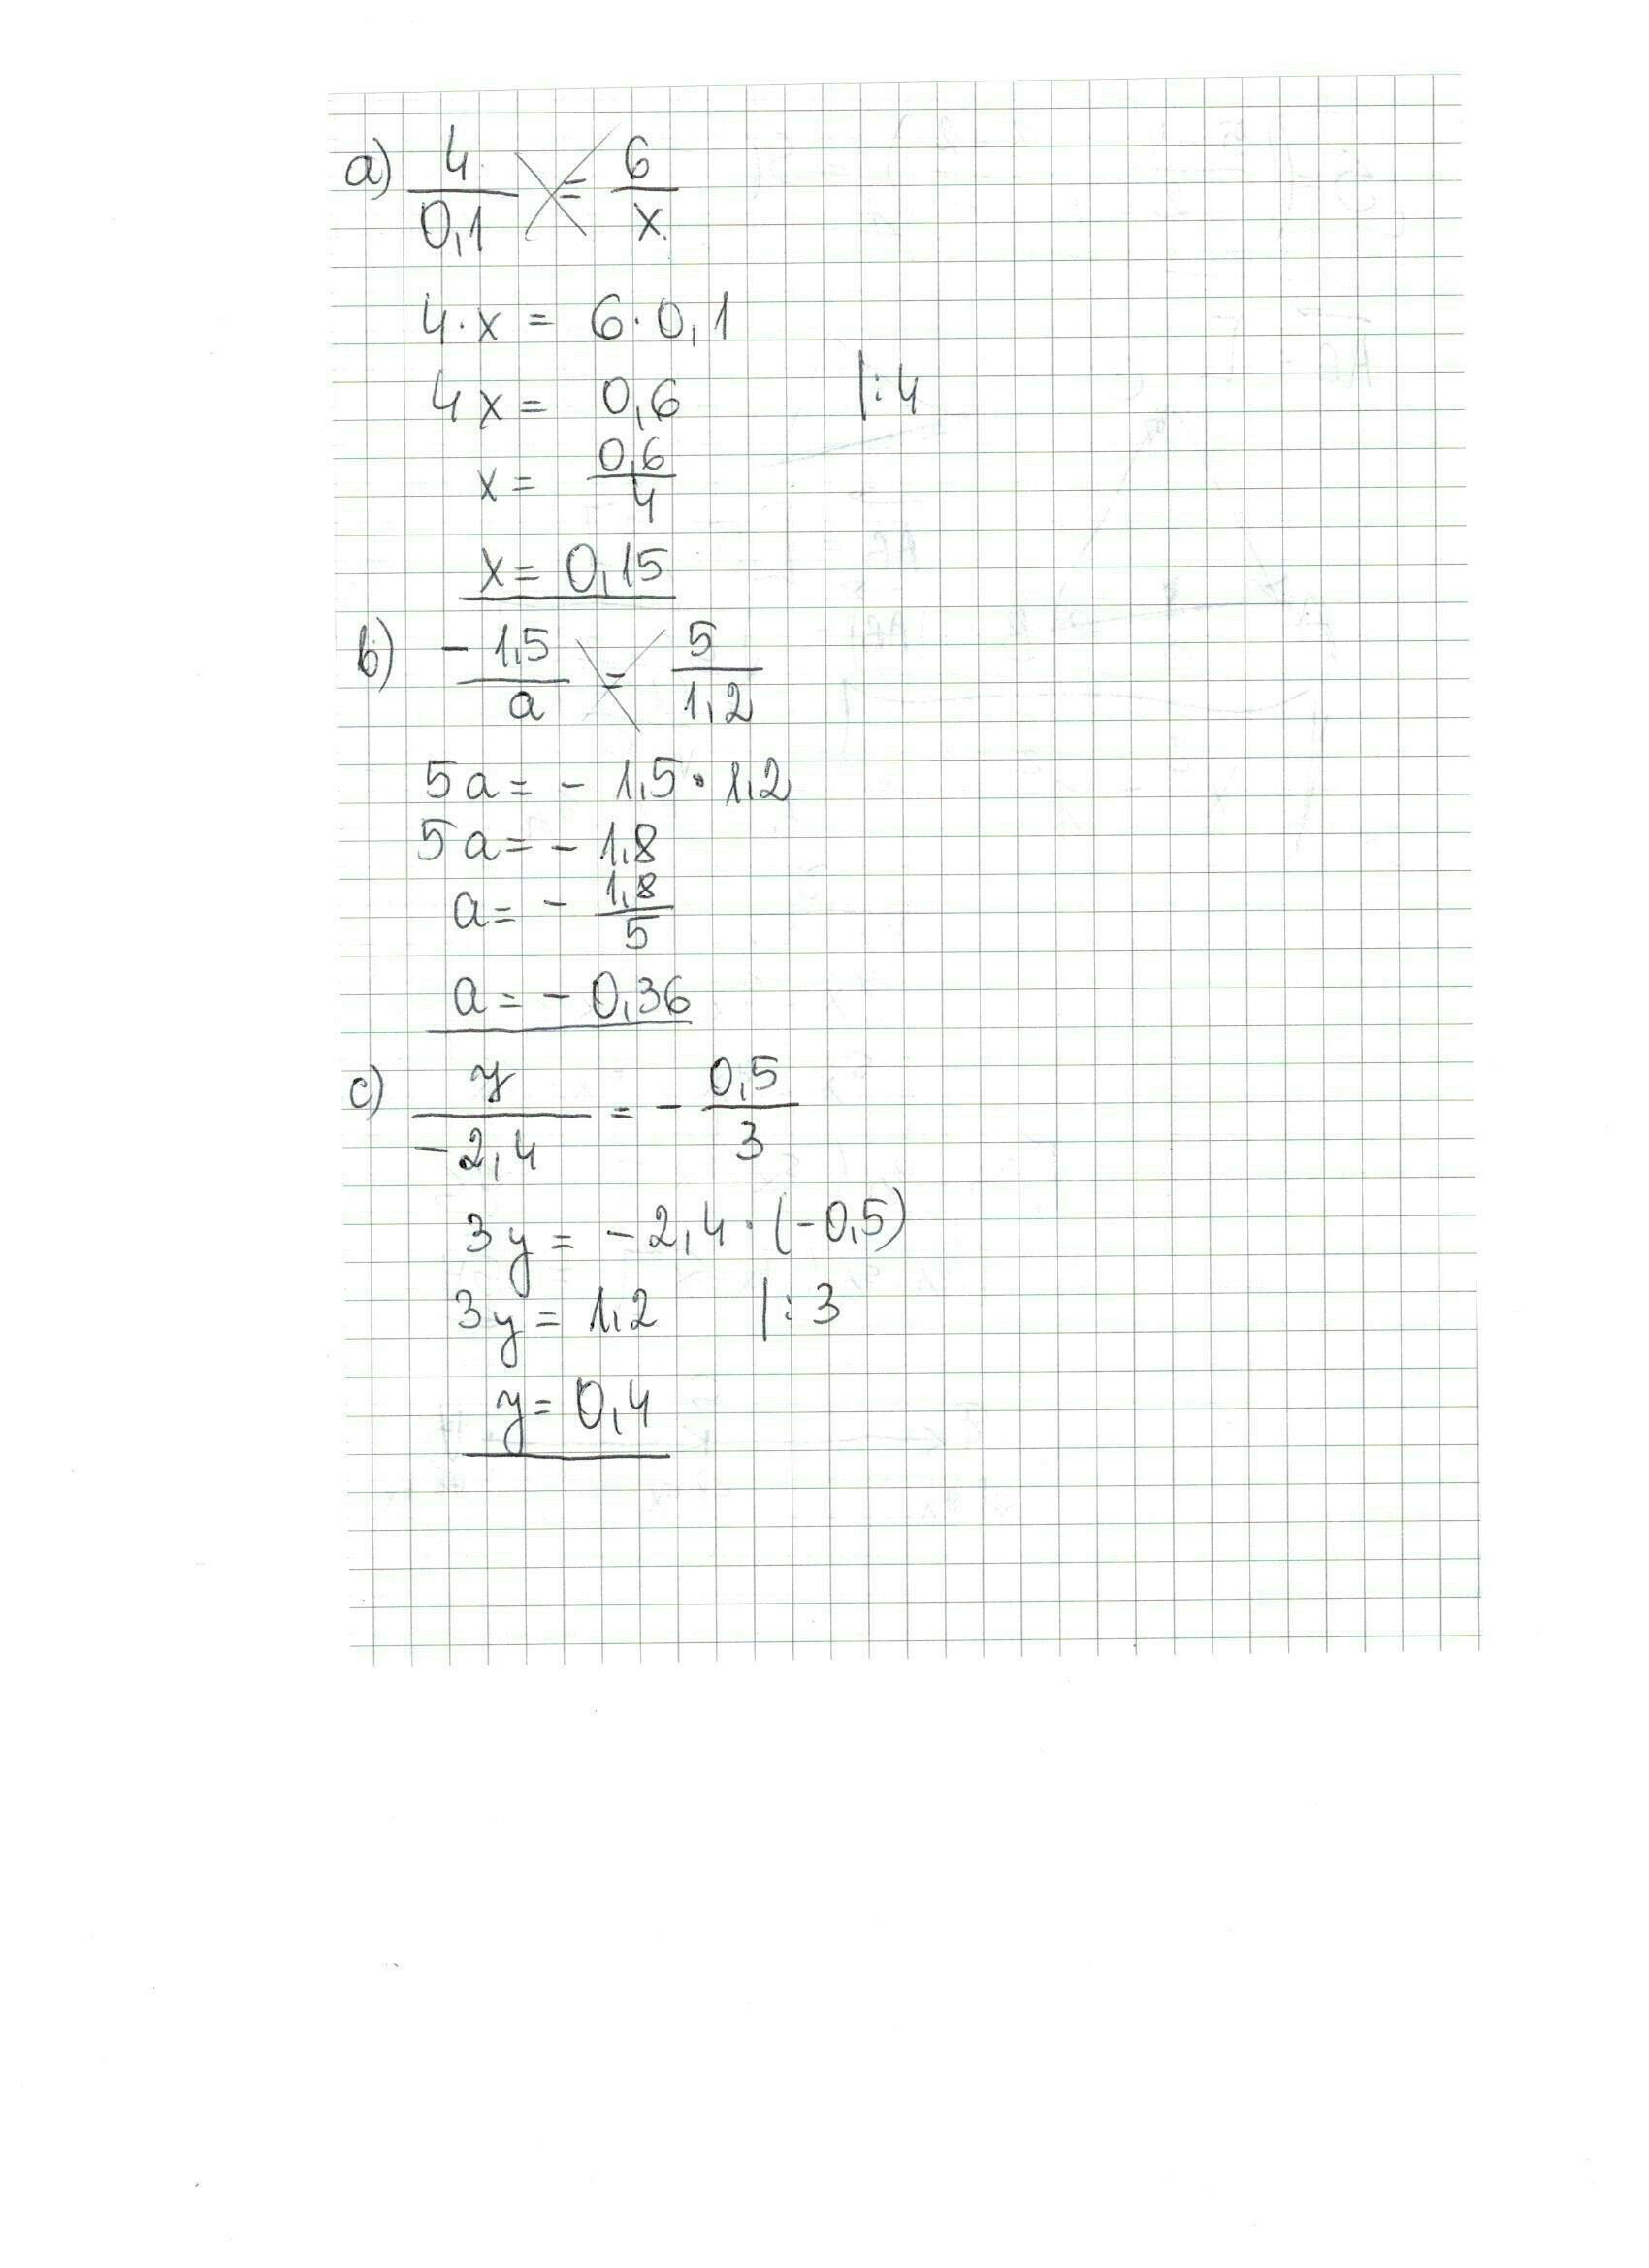 a) 4/0,1 = 6/x
4·x = 6·0,1
4x = 0,6 |:4
x = 0,6/4
x = 0,15
b) -1,5/a = 5/1,2
5a = - 1,5·1,2
5a = - 1,8
a = - 1,8/5
a = - 0,36
c) y/-2,4 = - 0,5/3
3y = -2,4·(-0,5)
3y = 1,2 |:3
y = 0,4